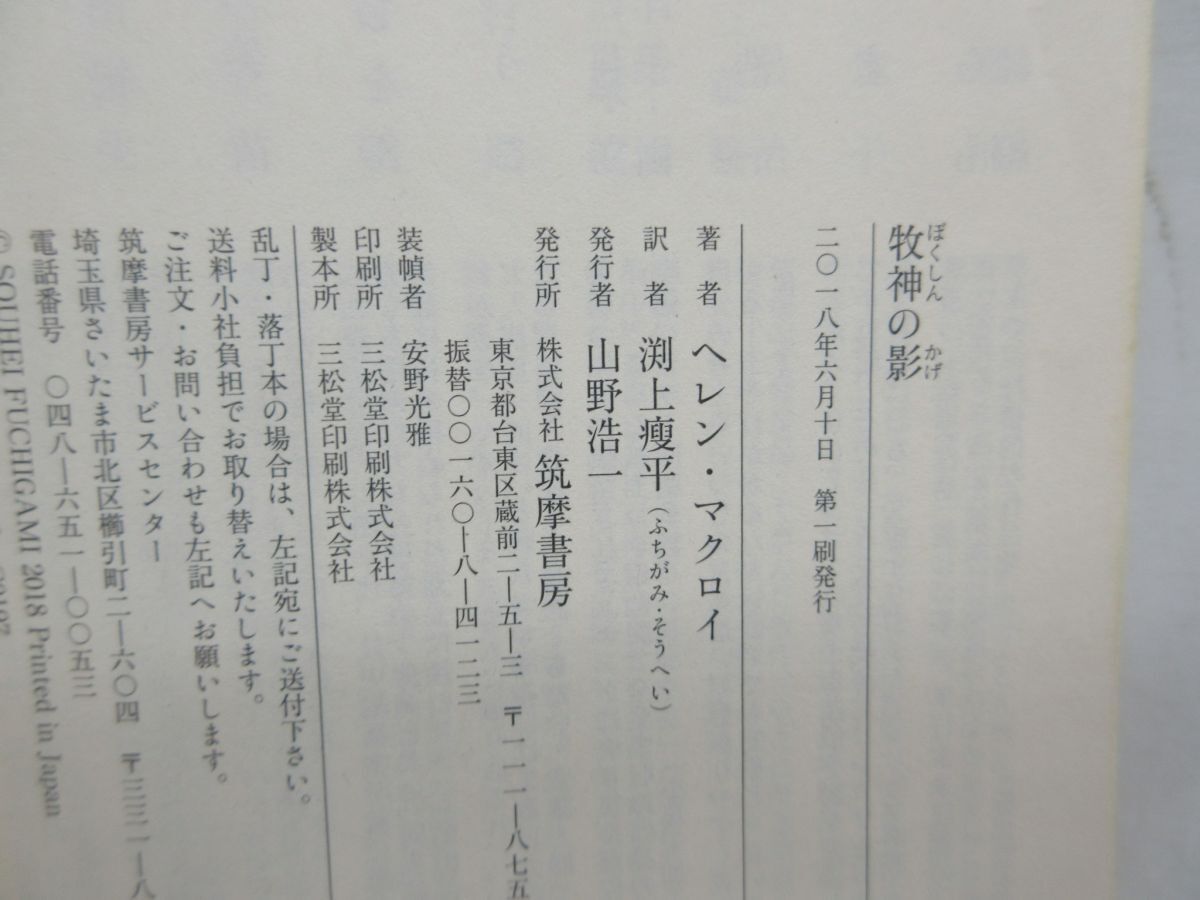 牧神の影
ぼくしん かげ
二〇一八年六月十日 第一刷発行
著者 ヘレン・マクロイ
訳者 渕上瘦平（ふちがみ・そうへい）
発行者 山野浩一
発行所 株式会社 筑摩書房
東京都台東区蔵前二―五―三 〒一一一―八七五
振替〇〇一六〇―八―四一二三
装幀者 安野光雅
印刷所 三松堂印刷株式会社
製本所 三松堂印刷株式会社
乱丁・落丁本の場合は、左記宛にご送付下さい。
送料小社負担でお取り替えいたします。
ご注文・お問い合わせも左記へお願いします。
筑摩書房サービスセンター
埼玉県さいたま市北区櫛引町二―六〇四 〒三三一―八
電話番号 〇四八―六五一―〇〇五三
© SOUHEI FUCHIGAMI 2018 Printed in Japan